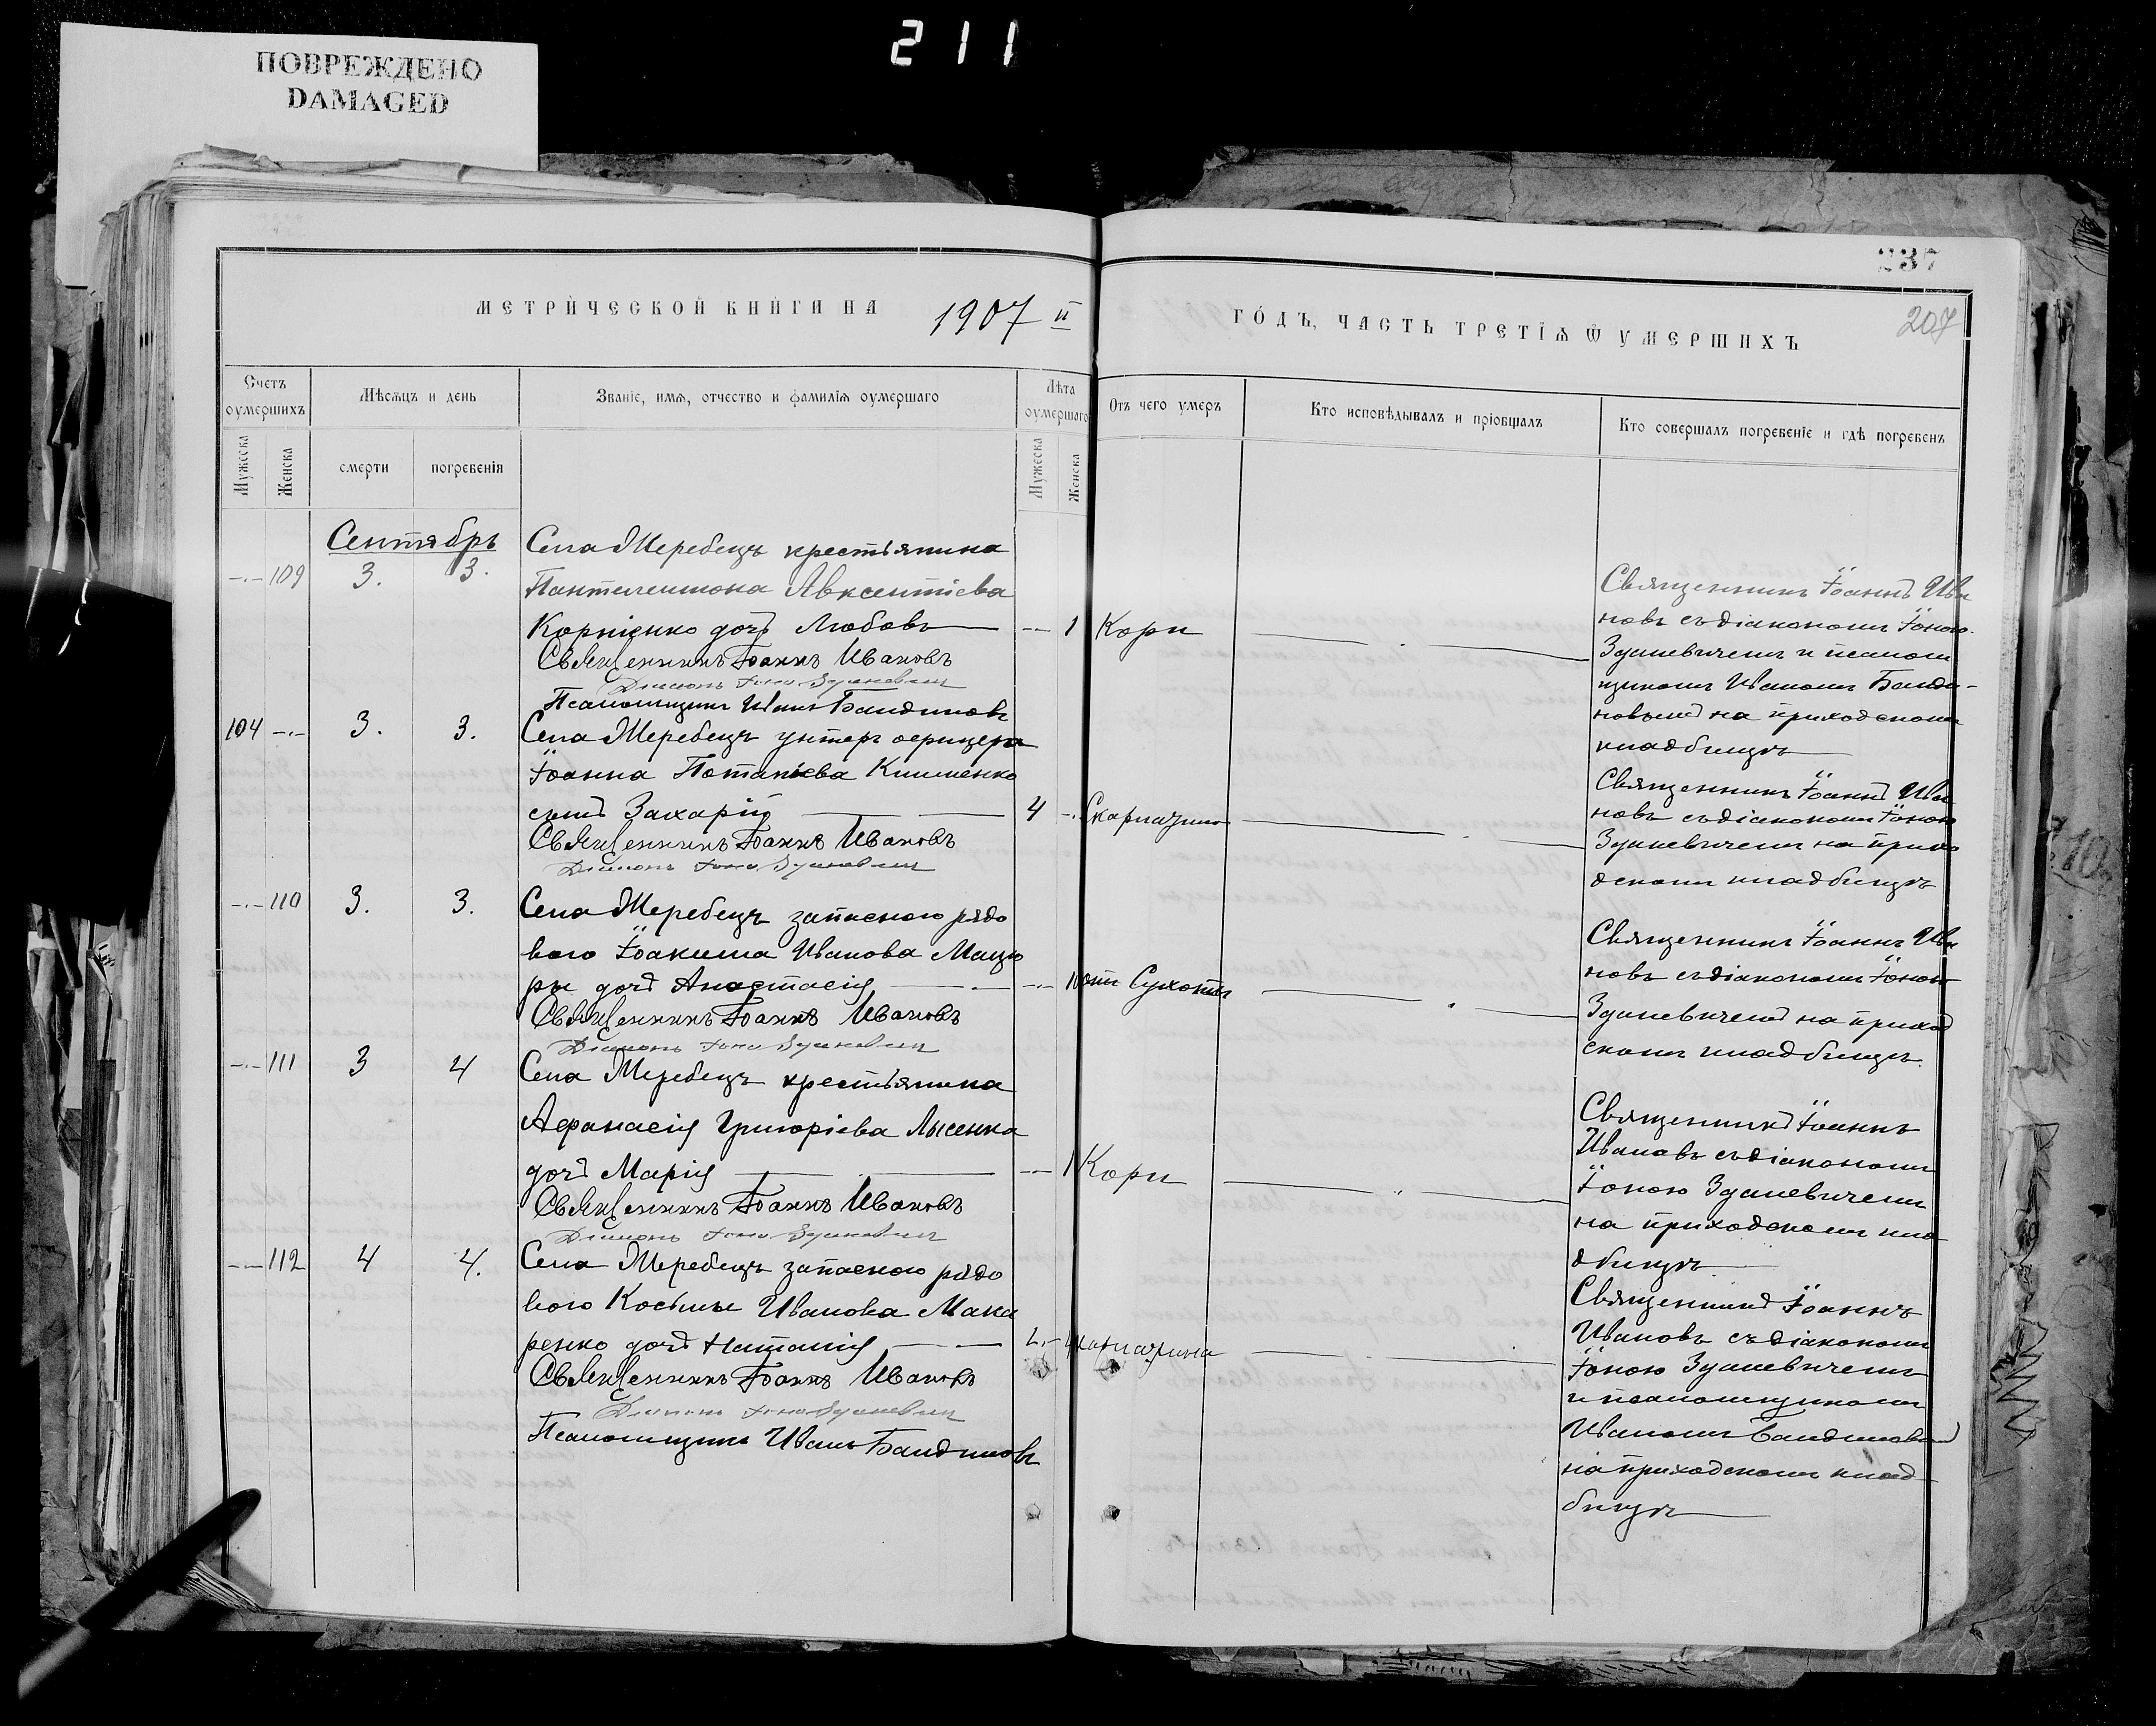 211
ПОВРЕЖДЕНО
DAMAGED
237
207
МЕТРИЧЕСКОЙ КНИГИ НА 1907 й
ГОДЪ, ЧАСТЬ ТРЕТІѦ Ѿ УМЕРШИХЪ
Счетъ оумершихъ
Мѣсѧцъ и день
Званіе, имѧ, отчество и фамиліѧ оумершаго
Лѣта оумершаго
Отъ чего умеръ
Кто исповѣдывалъ и пріобщалъ
Кто совершалъ погребеніе и гдѣ погребенъ
Мужеска
Женска
смерти
погребенія
Мужеска
Женска
Сентябрь
109 3. 3.
Села Жеребецъ крестьянина
Пантелеимона Авксентіева
Корніенко дочь Любовь 1 Кори
Священникъ Іоаннъ Ивановъ
Діаконъ Іона Зданевич
Псаломщикъ Иванъ Бандиновъ
Священникъ Іоаннъ Ива
новъ съ діакономъ Іоною
Зданевичемъ и псалом
щикомъ Иваномъ Банди-
новымъ на приходском
кладбищѣ
104 3. 3.
Села Жеребецъ унтеръ офицера
Іоанна Потапіева Клименко
сынъ Захарій 4 Скарлатина
Священникъ Іоаннъ Ивановъ
Діаконъ Іона Зданевич
Священникъ Іоаннъ Ива
новъ съ діакономъ Іоною
Зданевичемъ на прихо
дскомъ кладбищѣ
110 3. 3.
Села Жеребецъ запасного рядо
вого Іоакима Иванова Мацю
ры дочь Анастасія отъ Сухоты
Священникъ Іоаннъ Ивановъ
Діаконъ Іона Зданевич
Священникъ Іоаннъ Ива
новъ съ діакономъ Іоною
Зданевичемъ на приход
скомъ кладбищѣ.
111 3 4
Села Жеребецъ крестьянина
Афанасія Григоріева Лысенка
дочь Марія 1 Кори
Священникъ Іоаннъ Ивановъ
Діаконъ Іона Зданевич
Священникъ Іоаннъ
Ивановъ съ діакономъ
Іоною Зданевичемъ
на приходскомъ кла
дбищѣ
112 4 4.
Села Жеребецъ запасного рядо
вого Космы Иванова Мака
ренко дочь Наталія
Священникъ Іоаннъ Ивановъ
Діаконъ Іона Зданевич
Псаломщикъ Иванъ Бандиновъ
Священникъ Іоаннъ
Ивановъ съ діакономъ
Іоною Зданевичемъ
и псаломщикомъ
Иваномъ Бандиновым
на приходскомъ клад
бищѣ